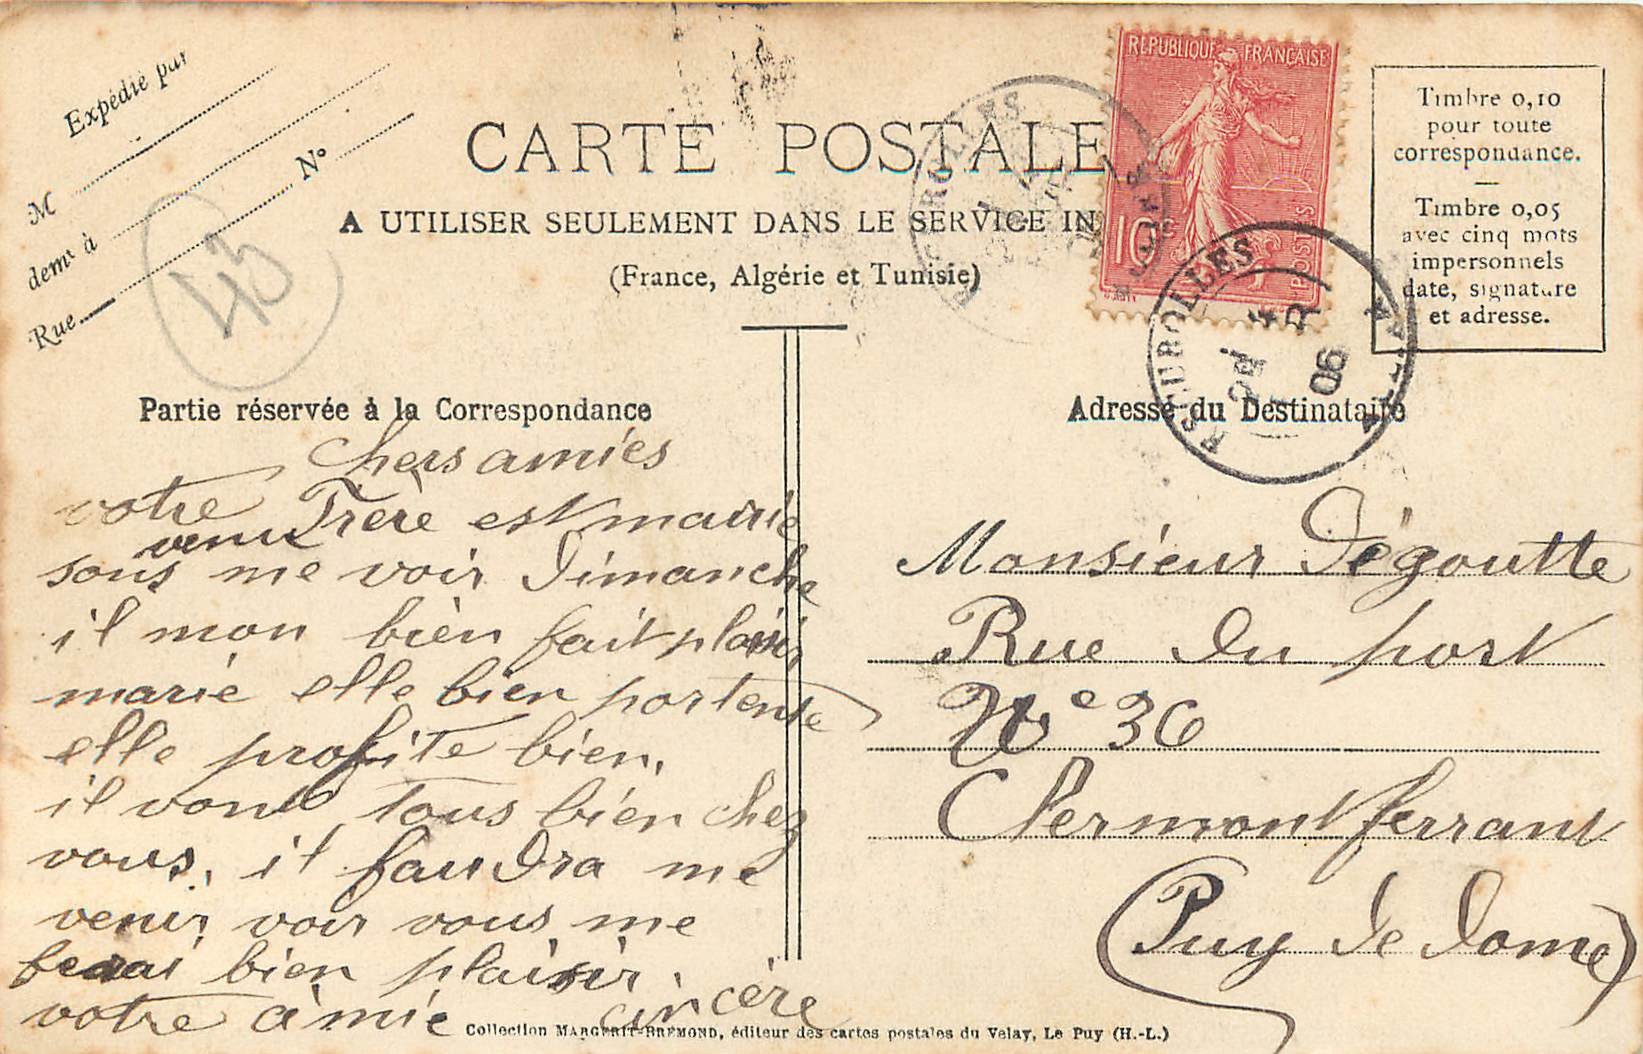 Expédié par
M
demt à
Rue
No
43
CARTE POSTALE
A UTILISER SEULEMENT DANS LE SERVICE IN
(France, Algérie et Tunisie)
REPUBLIQUE FRANÇAISE
10c
POSTES
Timbre 0,10
pour toute
correspondance.
Timbre 0,05
avec cinq mots
impersonnels
date, signature
et adresse.
USCLADES
ROLLES
06
Partie réservée à la Correspondance
Chers amies
votre Frère est
venu
me voir Dimanche
il mon bièn fait plaisir
marie elle bien portente
elle profite bien,
il vont Tous bièn chez
vous, il faudra me
venir voir vous me
ferai bien plaisir.
votre amie sincère
Adresse du Destinataire
Monsieur Dégoutte
Rue du port
No 36
Clermont ferrant
(Puy de Dome)
Collection MARGERIT-BRÉMOND, éditeur des cartes postales du Velay, Le Puy (H.-L.)